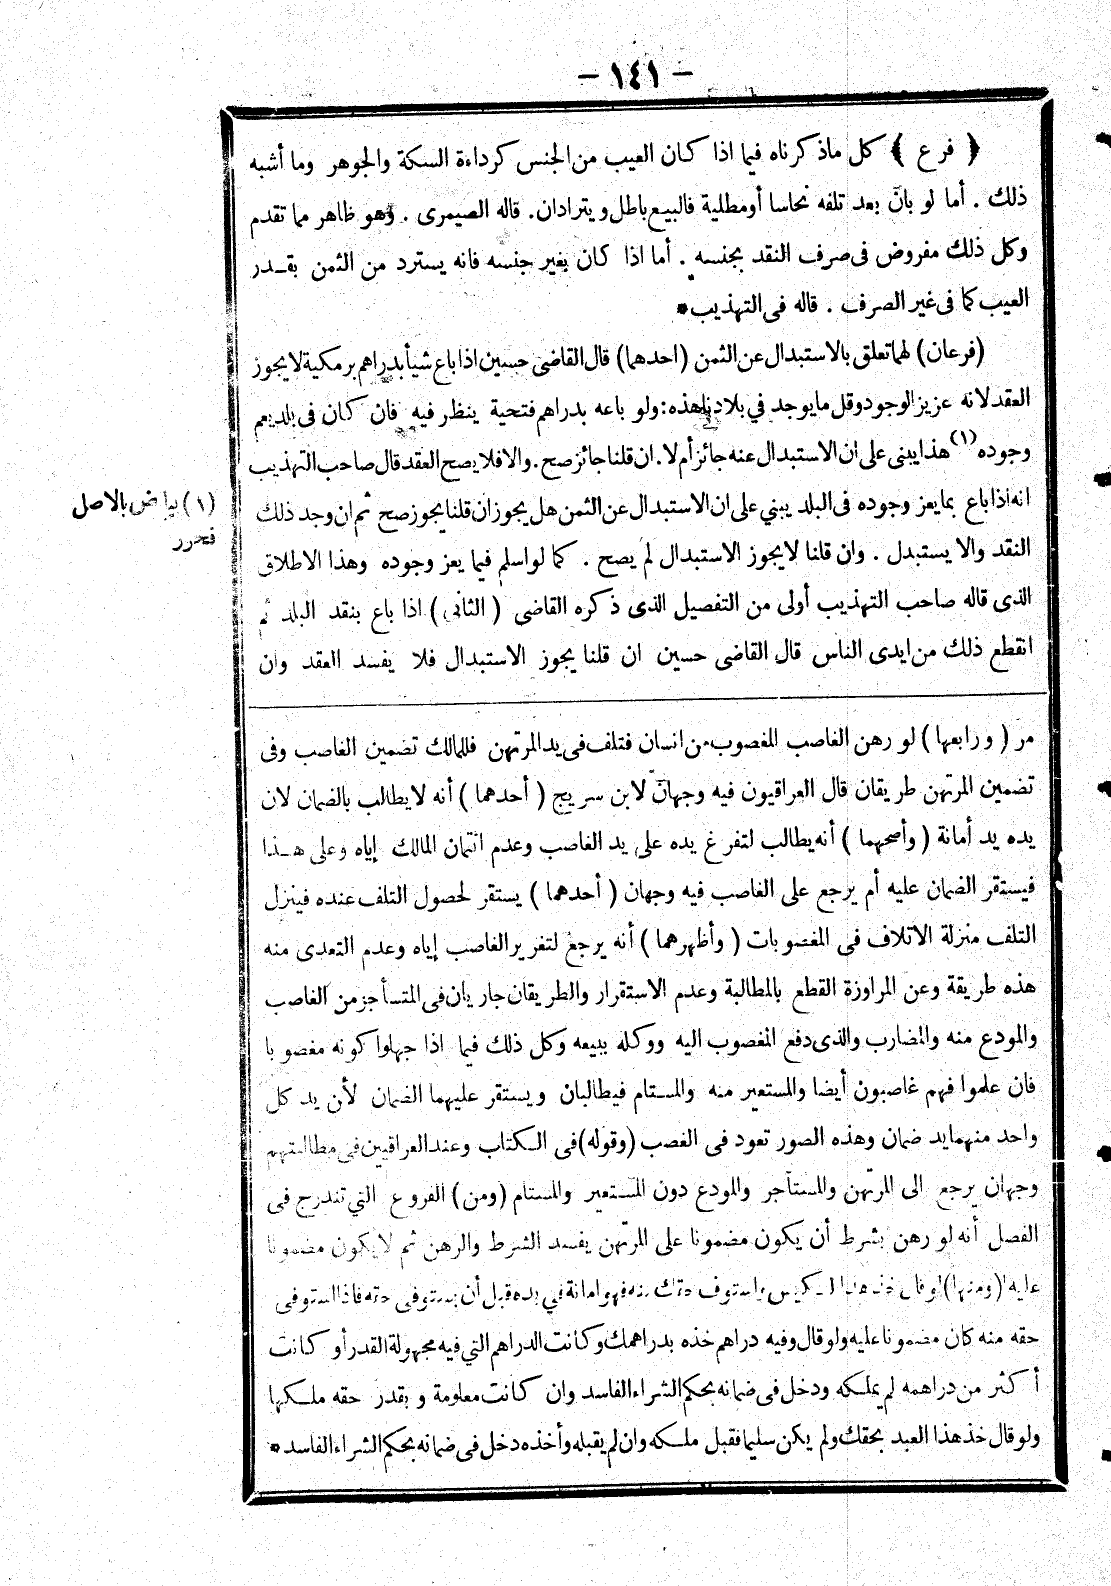 — ١٤١ —
﴿ فرع ﴾ كل ماذكرناه فيما اذا كان العيب من الجنس كرداءة السكة والجوهر وما أشبه
ذلك . أما لو بان بعد تلفه نحاسا أومطلية فالبيع باطل ويترادان. قاله الصيمرى . وهو ظاهر مما تقدم
وكل ذلك مفروض فى صرف النقد بجنسه . أما اذا كان بغير جنسه فانه يسترد من الثمن بقدر
العيب كما فى غير الصرف . قاله فى التهذيب *
(فرعان) لهما تعلق بالاستبدال عن الثمن (احدهما) قال القاضى حسين اذا باع شيأ بدراهم برمكية لايجوز
العقد لانه عزيز الوجود وقل مايوجد في بلادنا هذه: ولو باعه بدراهم فتحية ينظر فيه فان كان فى بلد يعم
وجوده (١) هذا يبنى على ان الاستبدال عنه جائز أم لا. ان قلنا جائز صح. والا فلا يصح العقد قال صاحب التهذيب
انه اذا باع بما يعز وجوده فى البلد يبني على ان الاستبدال عن الثمن هل يجوز ان قلنا يجوز صح ثم ان وجد ذلك
النقد والا يستبدل . وان قلنا لا يجوز الاستبدال لم يصح . كما لو اسلم فيما يعز وجوده وهذا الاطلاق
الذى قاله صاحب التهذيب أولى من التفصيل الذى ذكره القاضى ( الثانى ) اذا باع بنقد البلد ثم
انقطع ذلك من ايدى الناس قال القاضى حسين ان قلنا يجوز الاستبدال فلا يفسد العقد وان
(١) بياض بالاصل
فحرر
مر ( ورابعها ) لو رهن الغاصب المغصوب من انسان فتلف فى يد المرتهن فللمالك تضمين الغاصب وفى
تضمين المرتهن طريقان قال العراقيون فيه وجهان لابن سريج ( أحدهما ) أنه لا يطالب بالضمان لان
يده يد أمانة ( وأصحهما ) أنه يطالب لتفرغ يده على يد الغاصب وعدم ائتمان المالك إياه وعلى هذا
فيستقر الضمان عليه أم يرجع على الغاصب فيه وجهان ( أحدهما ) يستقر لحصول التلف عنده فينزل
التلف منزلة الاتلاف فى المغصوبات ( وأظهرهما ) أنه يرجع لتغرير الغاصب إياه وعدم التعدى منه
هذه طريقة وعن المراوزة القطع بالمطالبة وعدم الاستقرار والطريقان جاريان فى المتسأجر من الغاصب
والمودع منه والمضارب والذى دفع المغصوب اليه ووكله ببيعه وكل ذلك فيما اذا جهلوا كونه مغصوبا
فان علموا فهم غاصبون أيضا والمستعير منه والمستام فيطالبان ويستقر عليهما الضمان لأن يد كل
واحد منهما يد ضمان وهذه الصور تعود فى الغصب (وقوله) فى الكتاب وعند العراقيين فى مطالبتهم
وجهان يرجع الى المرتهن والمستأجر والمودع دون المستعير والمستام (ومن) الفروع التي تندرج فى
الفصل أنه لو رهن بشرط أن يكون مضمونا على المرتهن يفسد الشرط والرهن ثم لا يكون مضمونا
عليه (ومنها) لو قال خذ هذا الكيس واستوف حقك منه فهو امانة في يده قبل أن يستوفى حقه فاذا استوفى
حقه منه كان مضمونا عليه ولو قال وفيه دراهم خذه بدراهمك وكانت الدراهم التي فيه مجهولة القدر أو كانت
أكثر من دراهمه لم يملكه ودخل فى ضمانه بحكم الشراء الفاسد وان كانت معلومة وبقدر حقه ملكها
ولو قال خذ هذا العبد بحقك ولم يكن سلما فقبل ملكه وان لم يقبله وأخذه دخل فى ضمانه بحكم الشراء الفاسد *